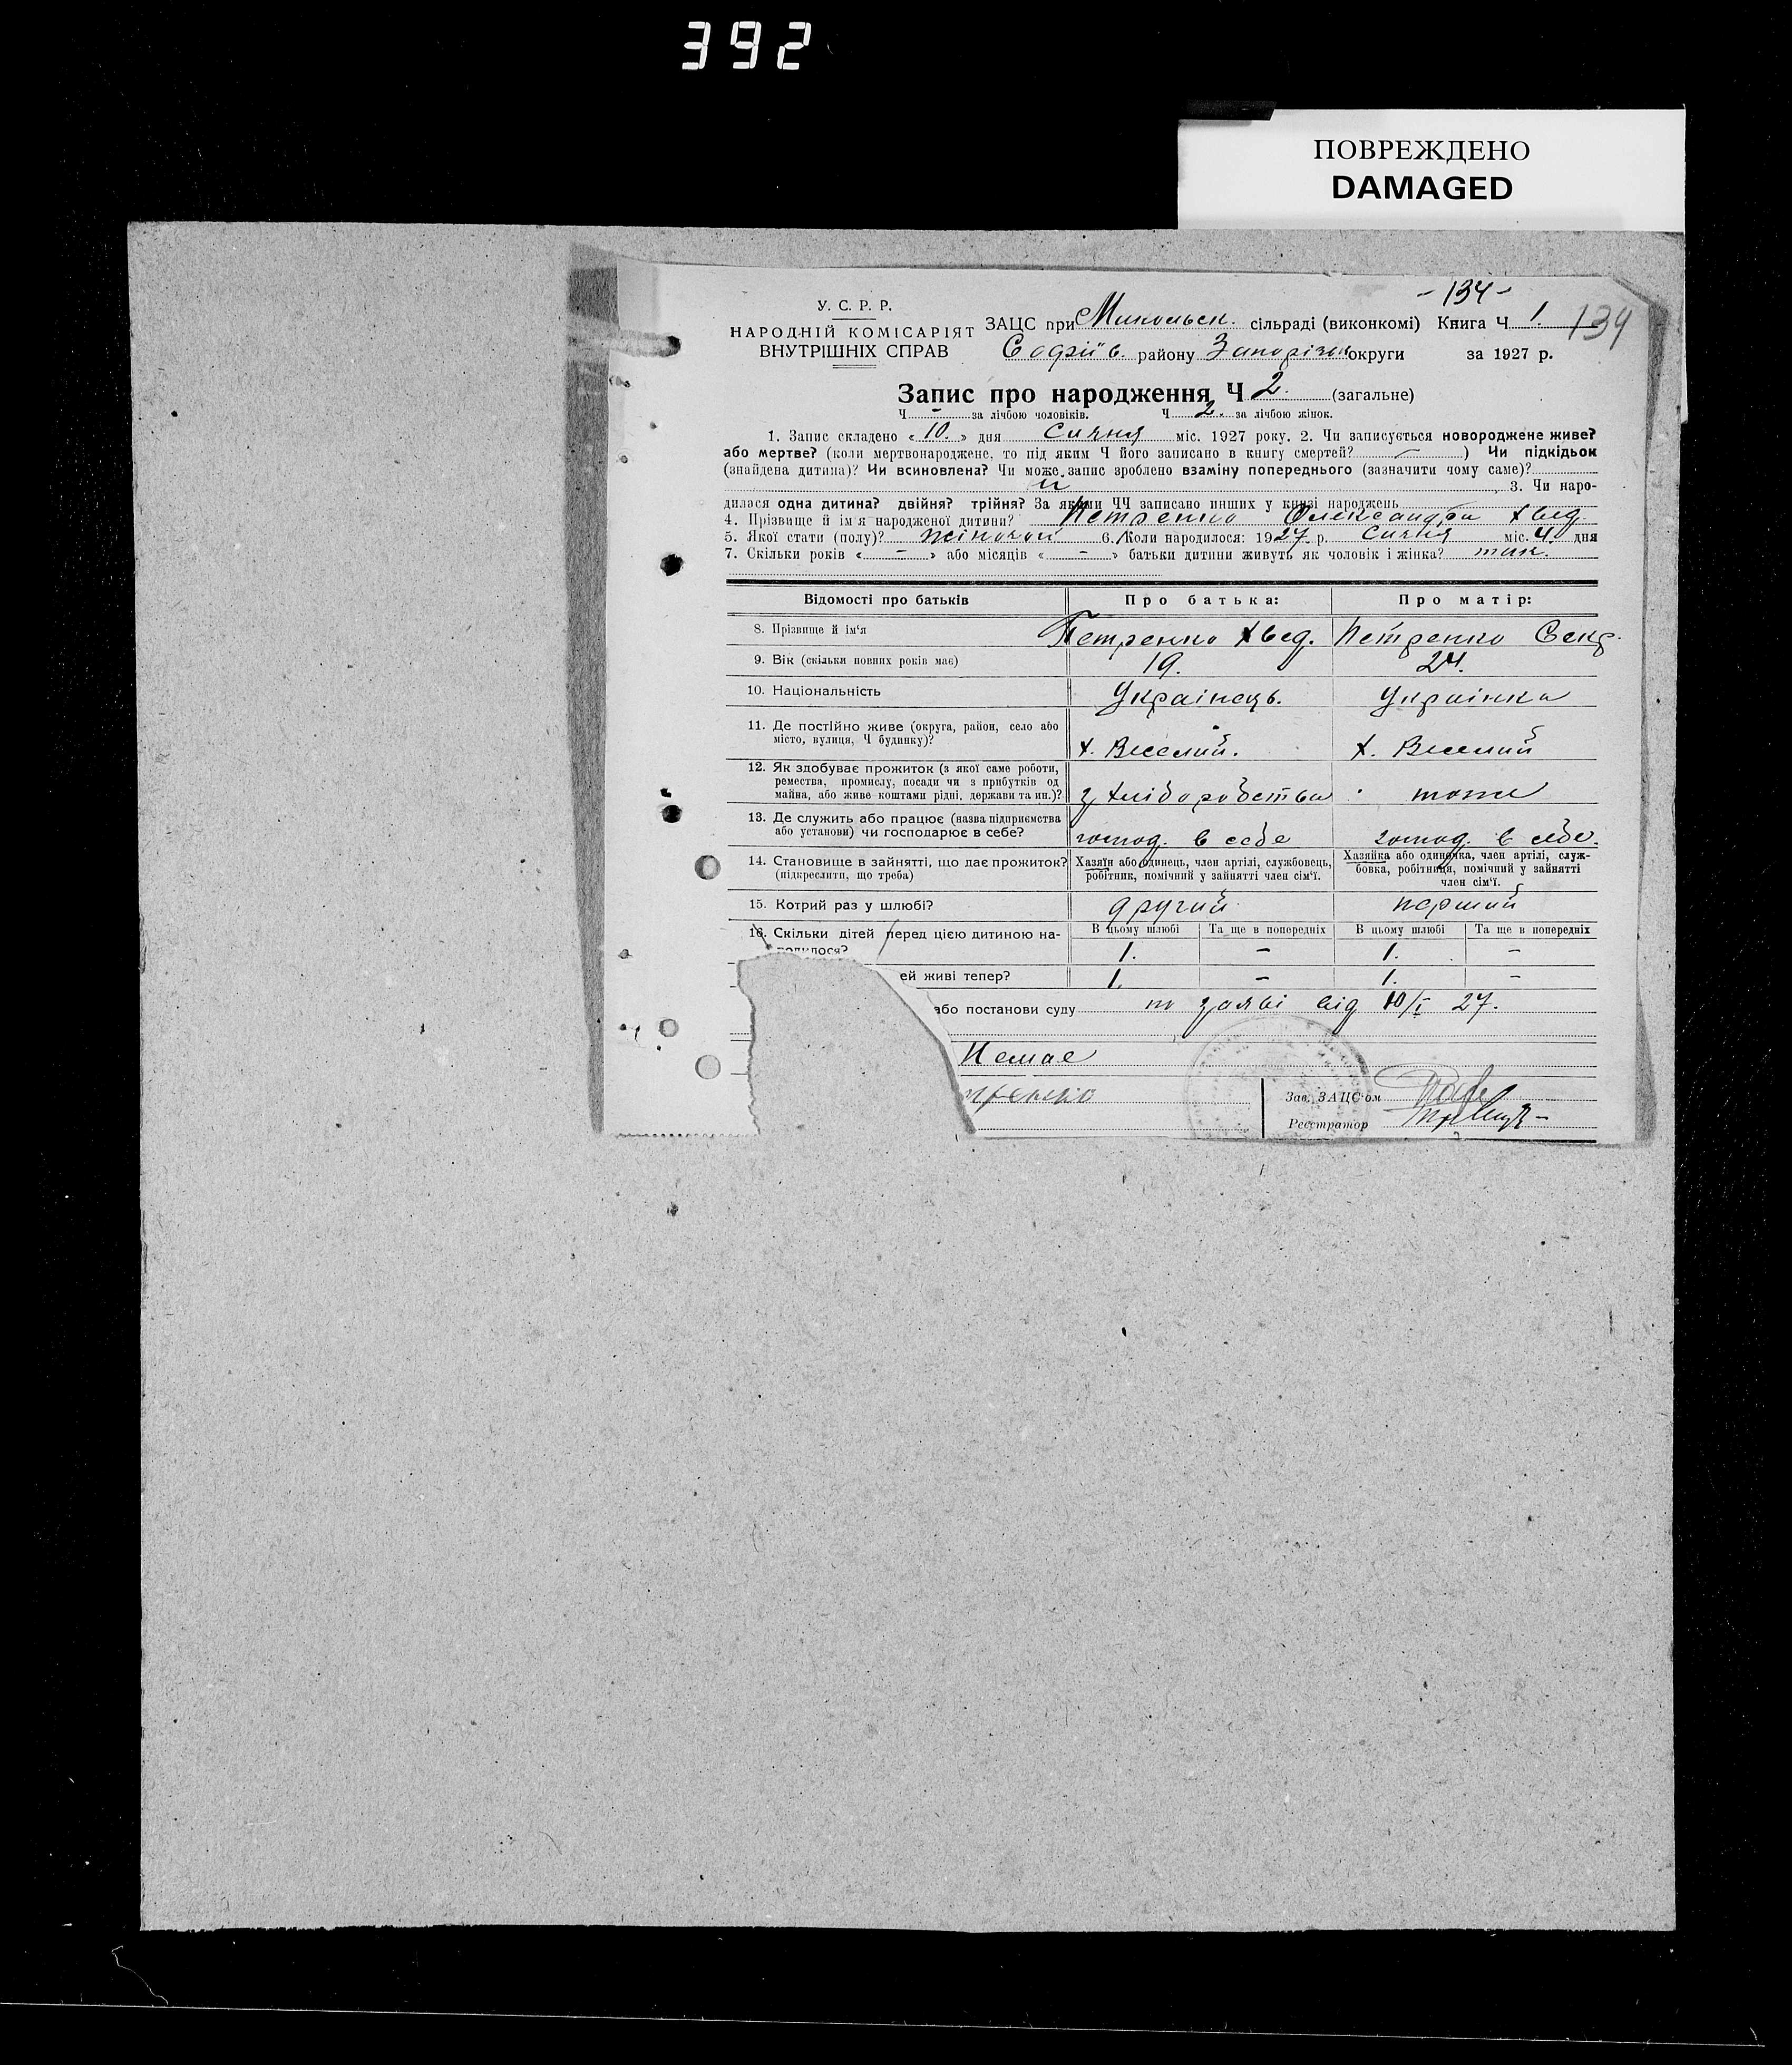 392
ПОВРЕЖДЕНО
DAMAGED
- 134 -
134
У. С. Р. Р.
НАРОДНІЙ КОМІСАРІЯТ
ВНУТРІШНІХ СПРАВ
ЗАЦС при Микольск. сільраді (виконкомі) Книга Ч 1.
Софіїв. району Запорізьк округи за 1927 р.
Запис про народження Ч 2. (загальне)
Ч - за лічбою чоловіків. Ч 2. за лічбою жінок.
1. Запис складено « 10. » дня Сичня міс. 1927 року. 2. Чи записується новороджене живе?
або мертве? (коли мертвонароджене, то під яким Ч його записано в книгу смертей? — ) Чи підкідьок
(знайдена дитина)? Чи всиновлена? Чи може запис зроблено взаміну попереднього (зазначити чому саме)?
3. Чи наро-
дилася одна дитина? двійня? трійня? За якими ЧЧ записано инших у книзі народжень
4. Прізвище й ім'я народженої дитини? Петренко Олександра Хвед.
5. Якої стати (полу)? жіночой 6. Коли народилося: 1927 р. Сичня міс. 4. дня
7. Скільки років « - » або місяців « - » батьки дитини живуть як чоловік і жінка? так.
Відомості про батьків Про батька: Про матір:
8. Прізвище й ім'я Петренко Хвед. Петренко
9. Вік (скільки повних років має) 19. 24.
10. Національність Українець. Українка
11. Де постійно живе (округа, район, село або
місто, вулиця, Ч будинку)? х. Веселий. х. Веселий
12. Як здобуває прожиток (з якої саме роботи,
ремества, промислу, посади чи з прибутків од
майна, або живе коштами рідні, держави та ин.)? з хліборобства тоже
13. Де служить або працює (назва підприємства
або установи) чи господарює в себе? господ. в себе господ. в себе.
14. Становище в зайнятті, що дає прожиток?
(підкреслити, що треба)
Хазяїн або одинець, член артілі, службовець,
робітник, помічний у зайнятті член сім'ї.
Хазяйка або одиначка, член артілі, служ-
бовка, робітниця, помічний у зайнятті
член сім'ї.
15. Котрий раз у шлюбі? другий перший
16. Скільки дітей перед цією дитиною на-
родилося?
В цьому шлюбі Та ще в попередніх В цьому шлюбі Та ще в попередніх
1. - 1. -
ей живі тепер? 1. - 1. -
або постанови суду по заяві від 10/I 27.
Немає
тренко
Зав. ЗАЦС'ом
Реєстратор